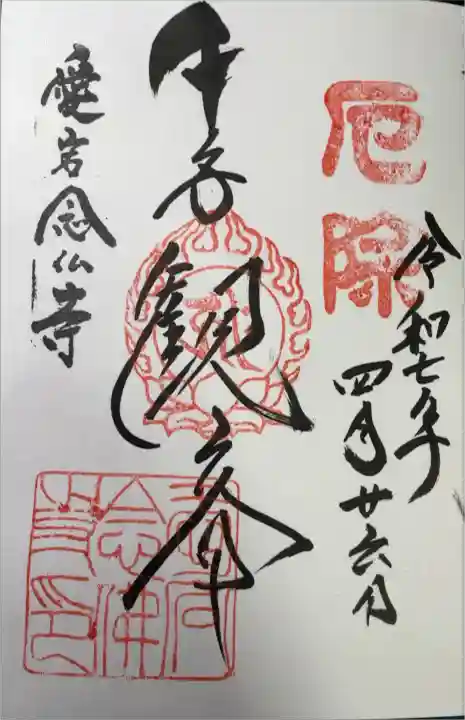 厄除
令和七年
四月廿六日
千手観音
愛宕念仏寺